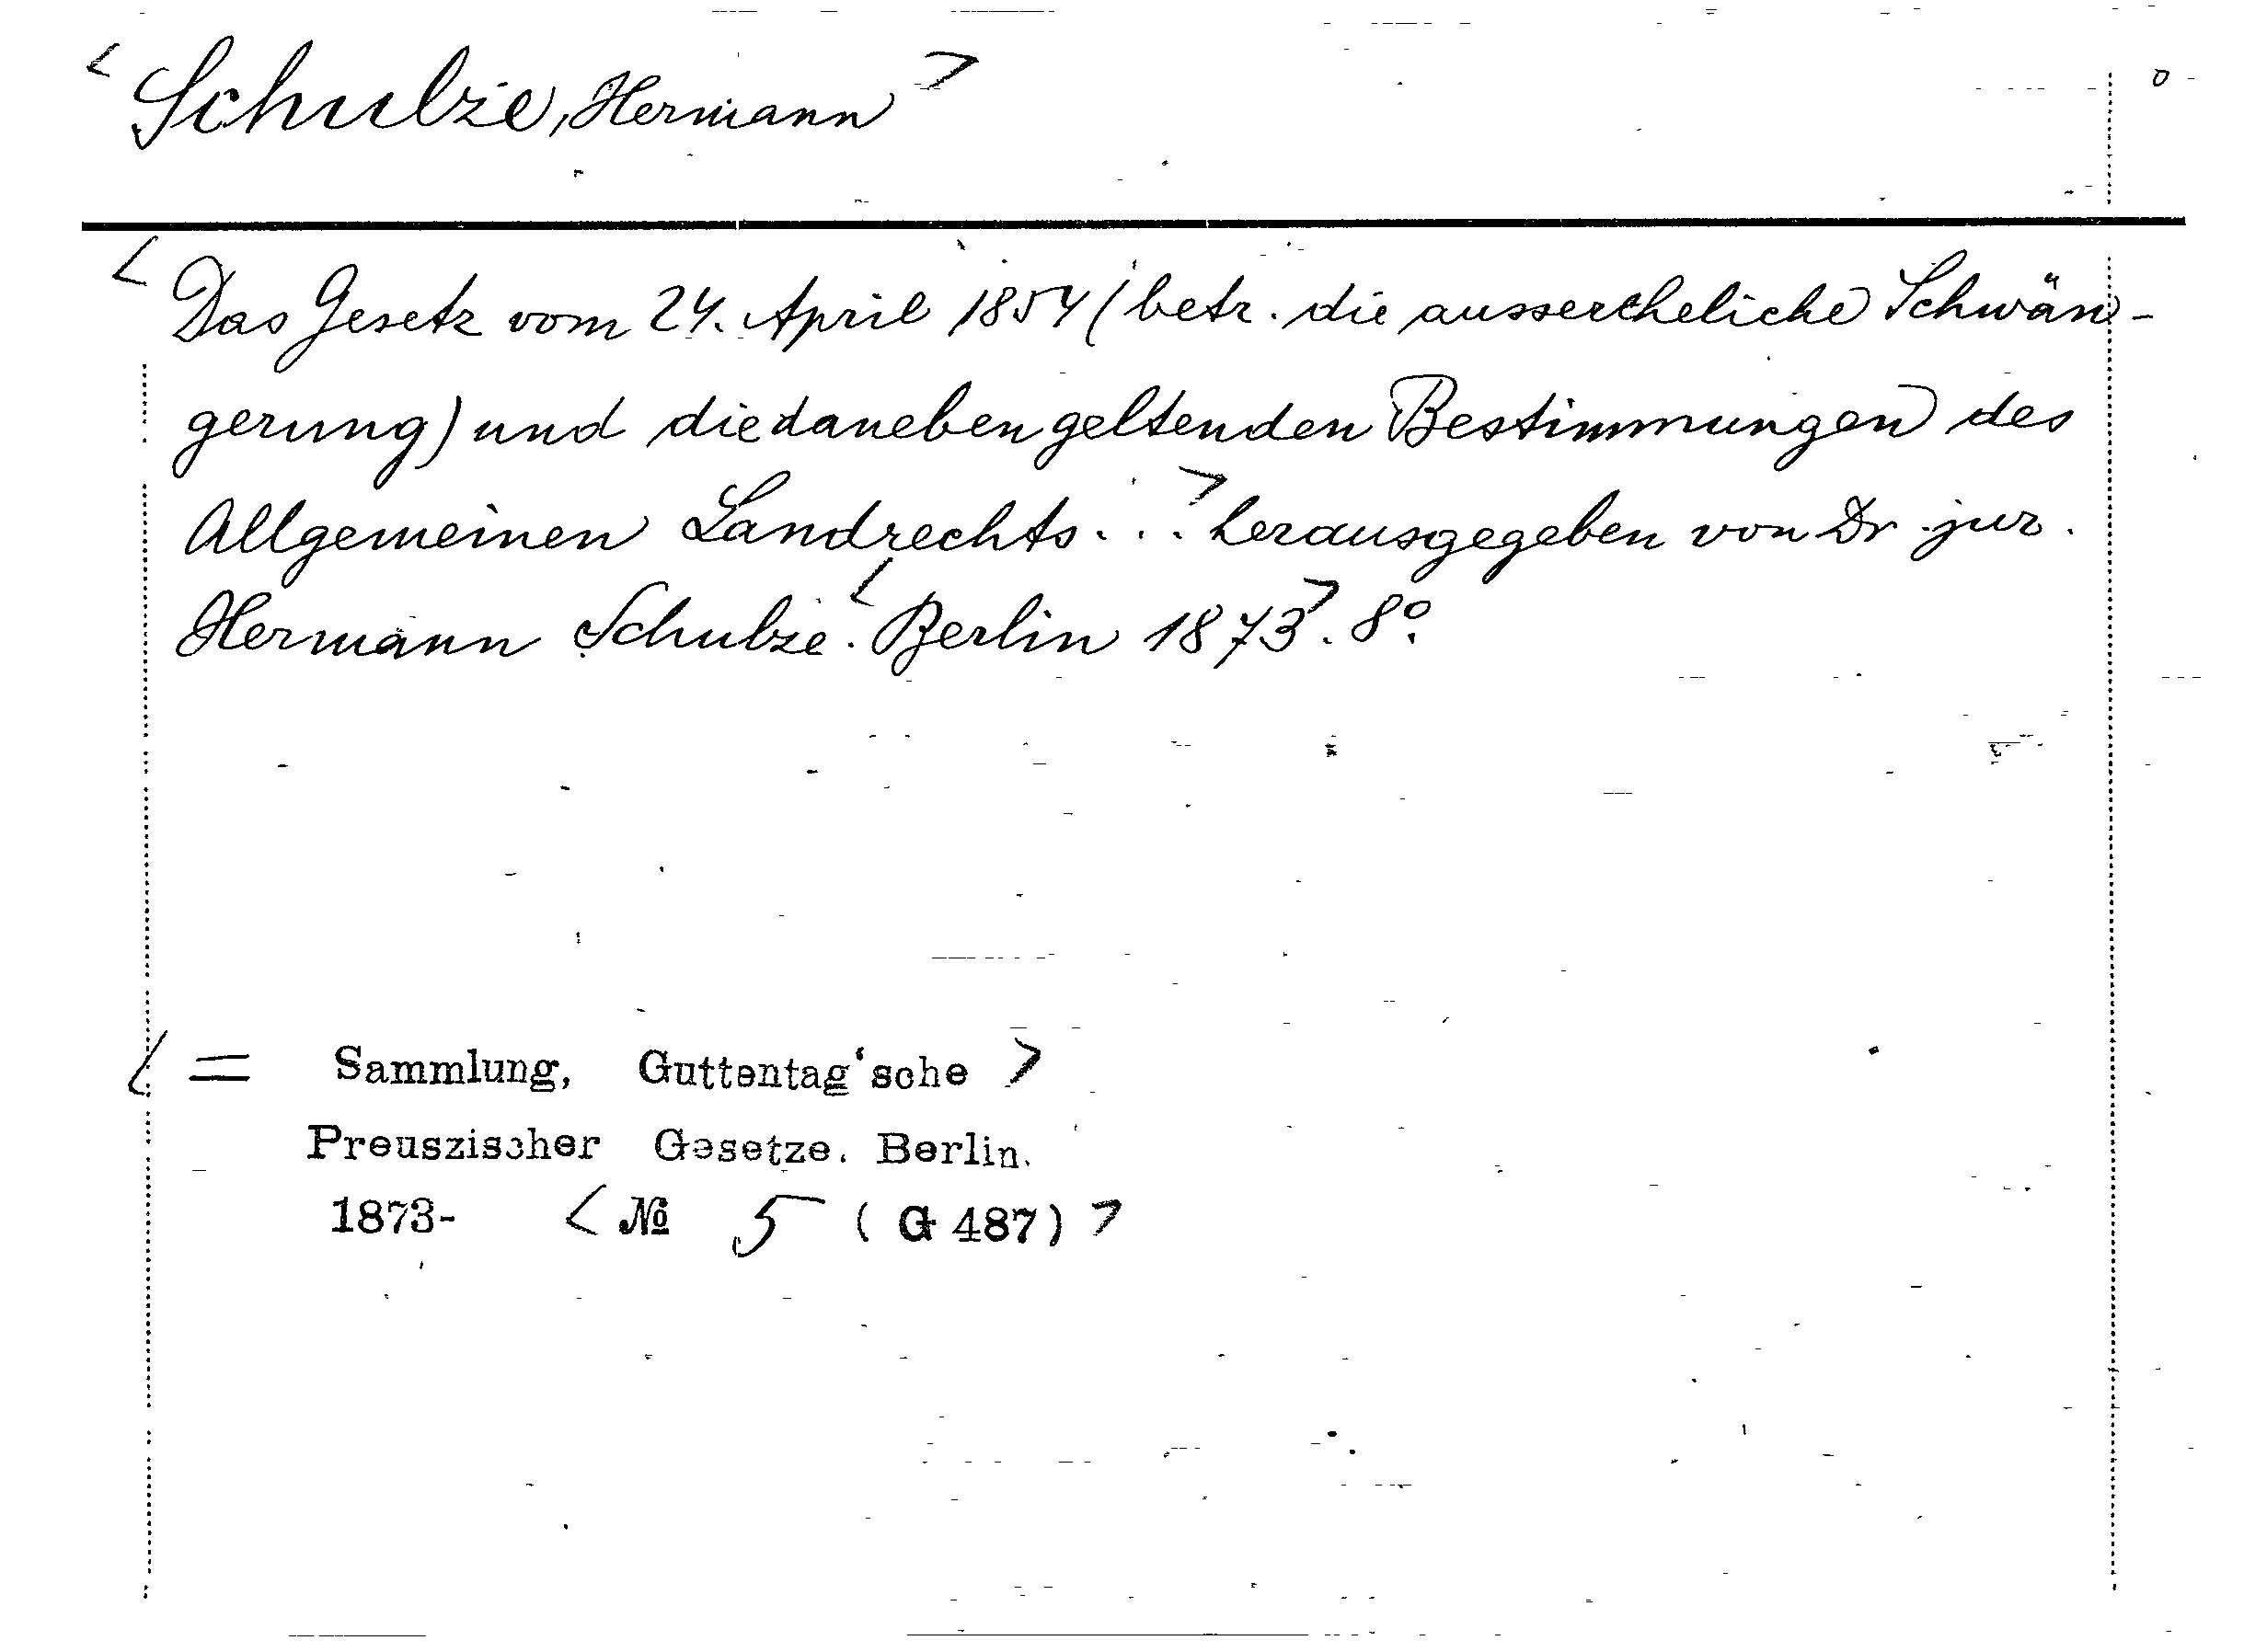 < Schulze, Hermann >
< Das Gesetz vom 24. April 1854 (betr. die aussereheliche Schwän-
gerung) und die daneben geltenden Bestimmungen des
Allgemeinen Landrechts...> herausgegeben von Dr. jur.
Hermann Schulze. < Berlin 1873 >. 8º.
< = Sammlung, Guttentag'sche >
Preuszischer Gesetze. Berlin.
1873- < № 5 ( G 487) >